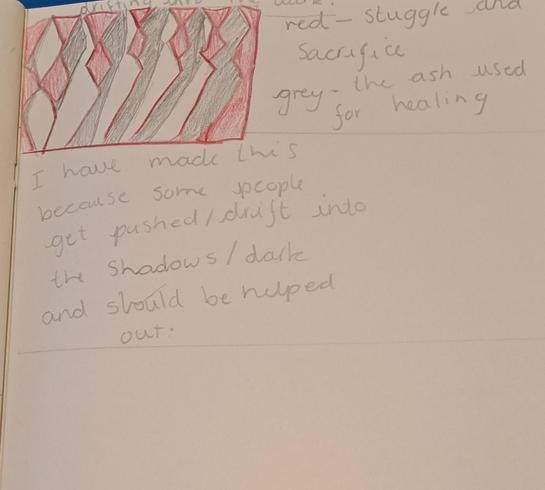 drifting into the dark.
red - stuggle and
sacrifice
grey - the ash used
for healing
I have made this
because some people
get pushed/drift into
the shadows/dark
and should be helped
out.